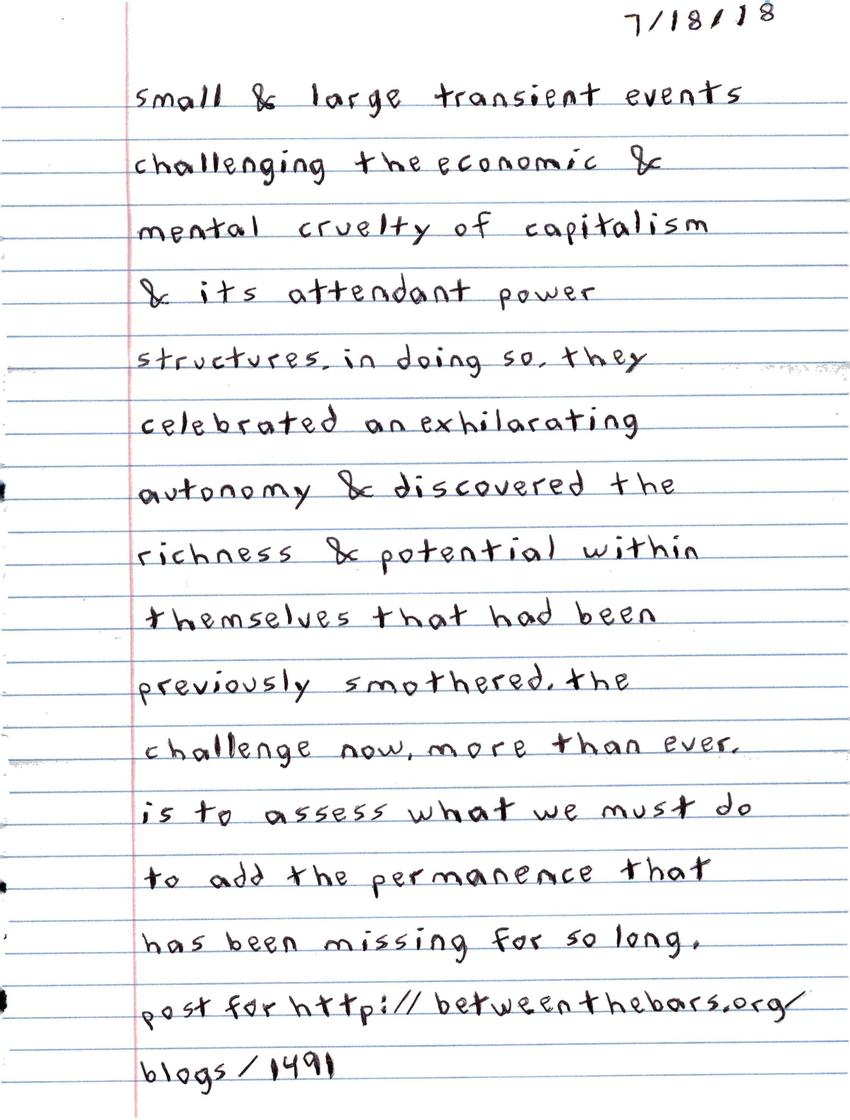 7/18/18
small & large transient events
challenging the economic &
mental cruelty of capitalism
& its attendant power
structures. in doing so, they
celebrated an exhilarating
autonomy & discovered the
richness & potential within
themselves that had been
previously smothered. the
challenge now, more than ever,
is to assess what we must do
to add the permanence that
has been missing for so long.
post for http://betweenthebars.org/
blogs/1491